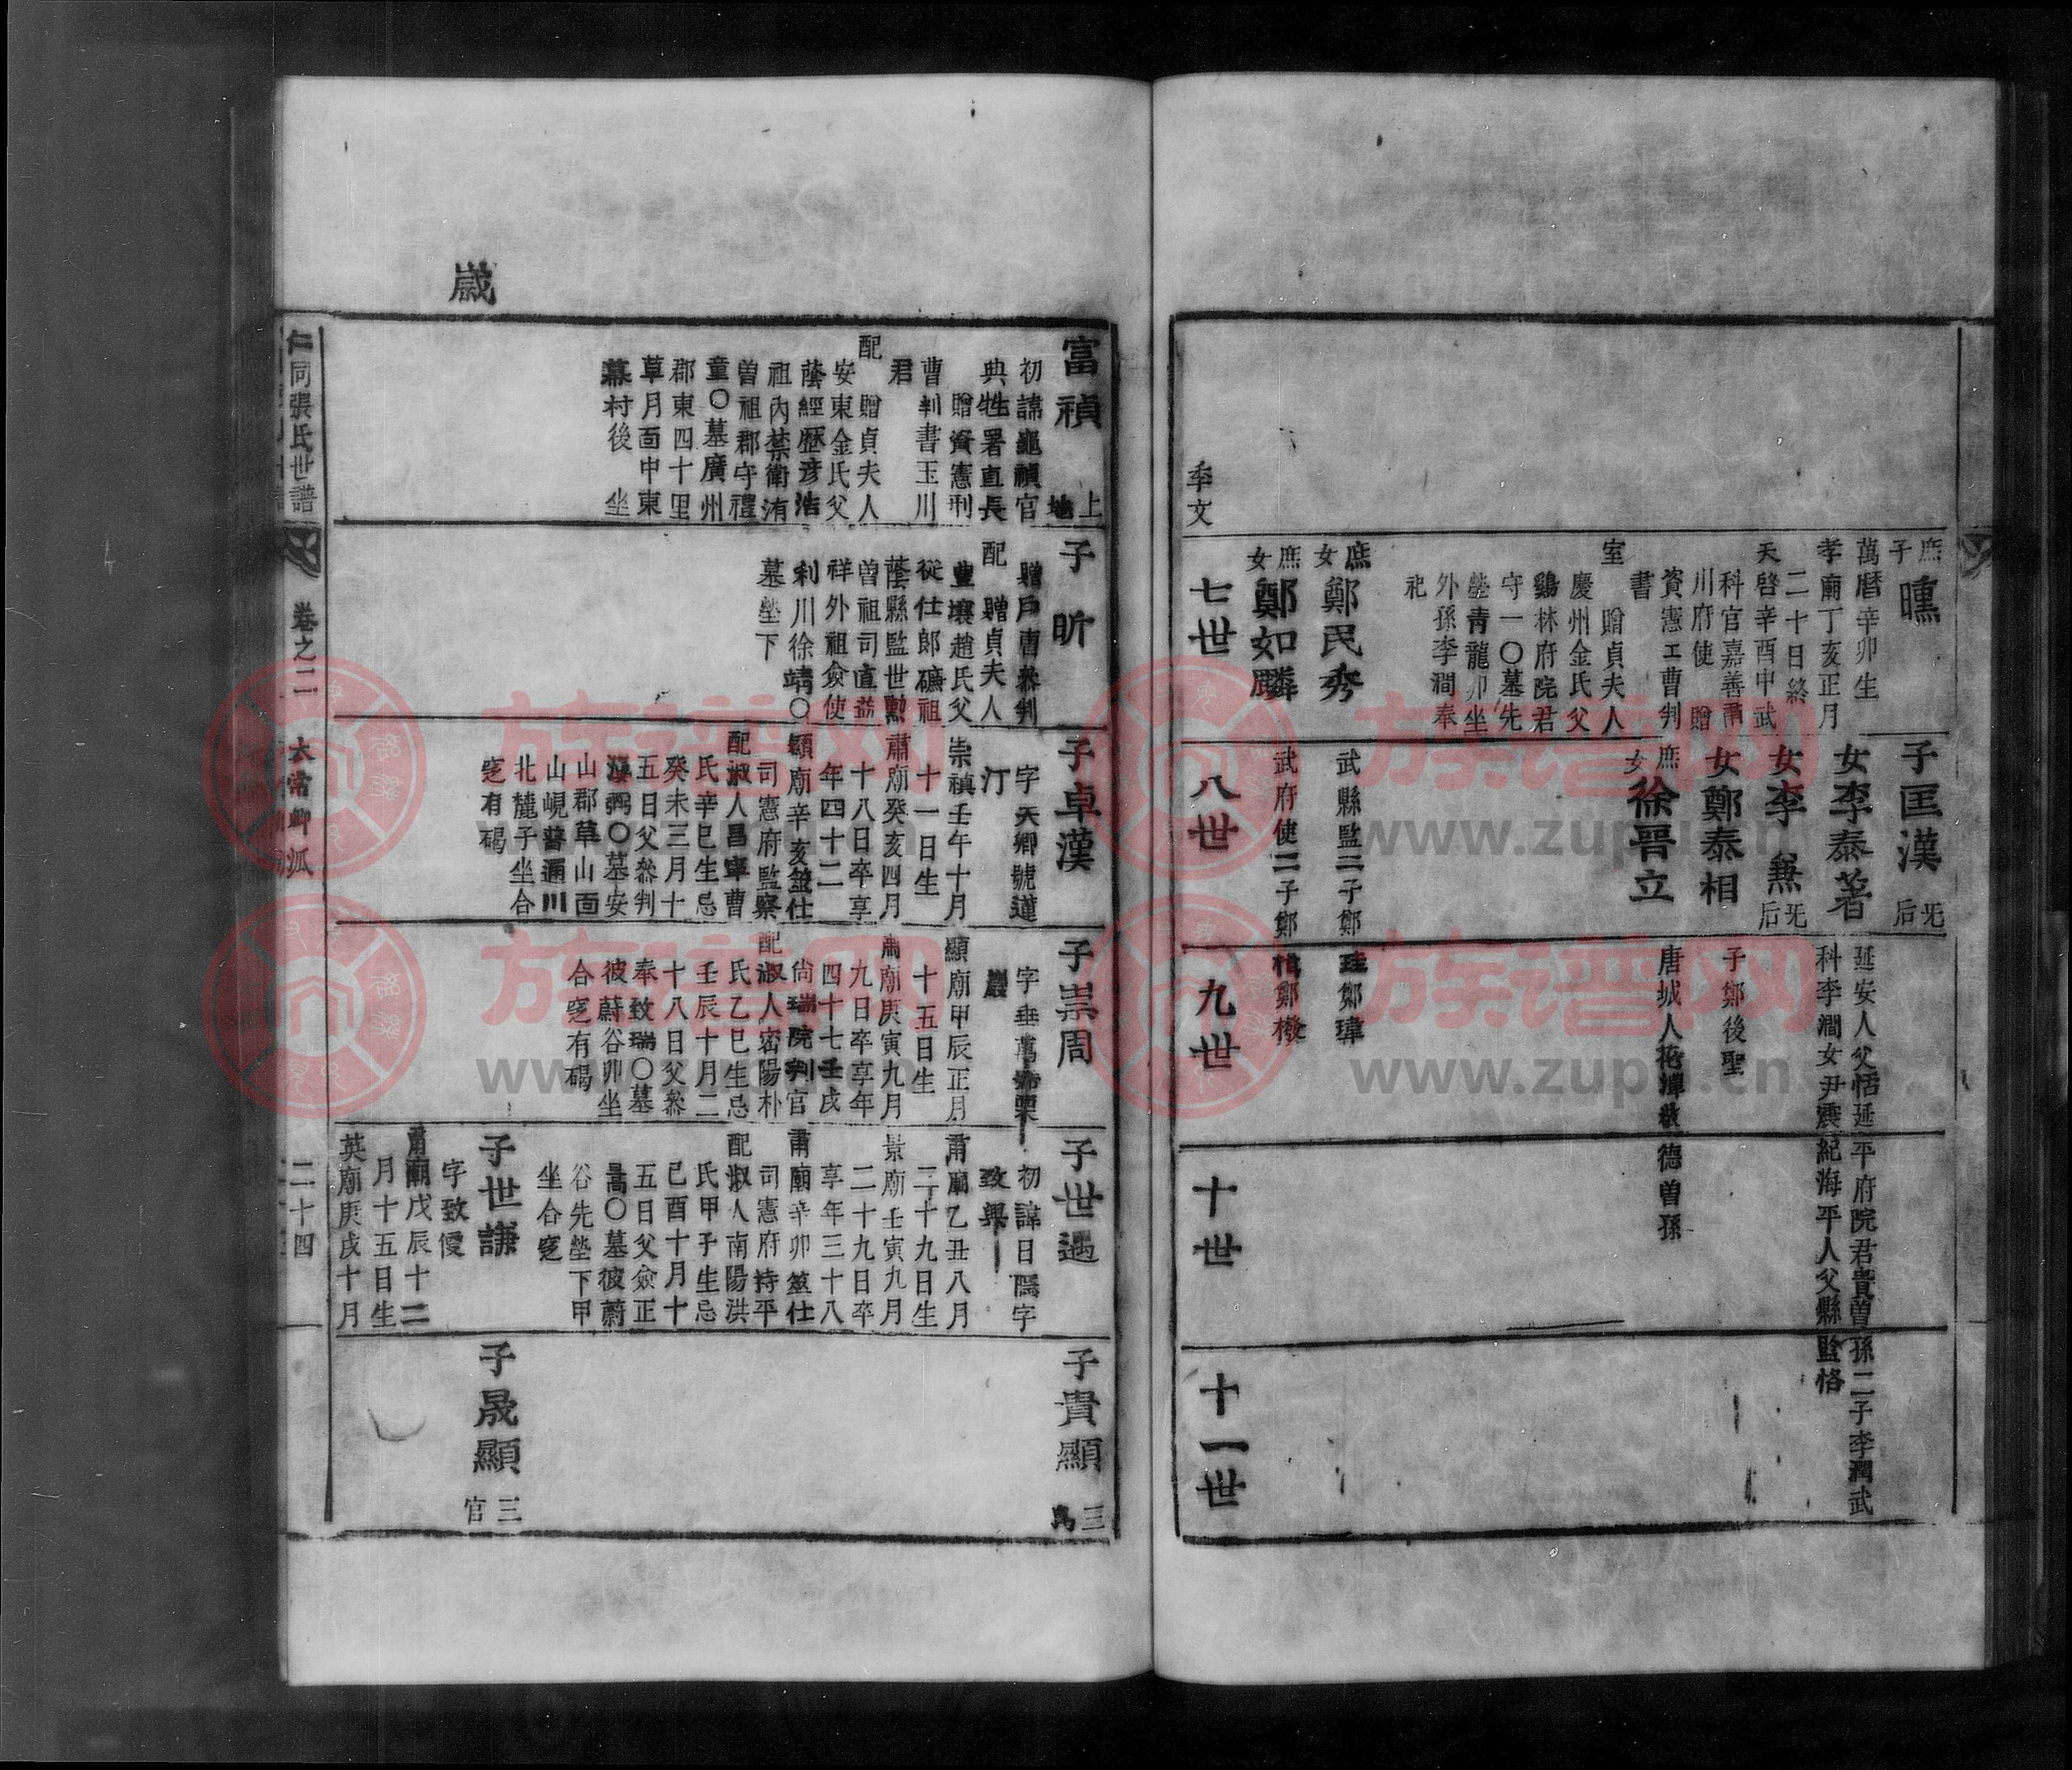 庶子 曛
萬曆辛卯生
孝廟丁亥正月
二十日終
天啓辛酉中武
科官嘉善甫
川府使 贈
資憲工曹判
書
室 贈貞夫人
慶州金氏父
鷄林府院君
守一〇墓先
塋靑龍卯坐
外孫李澗奉
祀
庶女 鄭民秀
庶女 鄭如麟
子匡漢 旡后
女李泰著
女李 無旡后
女鄭泰相
庶女 徐晋立
武縣監二子鄭
武府使二子鄭
延安人父恬延平府院君貴曽孫二子李潤武
科李澗女尹震紀海平人父縣監恪
子鄭後聖
唐城人花潭敬德曽孫
珪鄭瑋
鄭橃
季文
七世
八世
九世
十世
十一世
歲
富禎 上
初諱龜禎官
典牲署直長
贈資憲刑
曹判書玉川
君
配 贈貞夫人
安東金氏父
蔭經歷彦浩
祖內禁衛洧
曽祖郡守禮
童〇墓廣州
郡東四十里
草月面中東
幕村後 坐
子昕
贈戶曹叅判
配 贈貞夫人
豊壤趙氏父
從仕郎礦祖
蔭縣監世勲
曽祖司直益
祥外祖僉使
利川徐靖〇
墓塋下
子卓漢
字天卿號道
汀
崇禎壬午十月
十一日生
肅廟癸亥四月
十八日卒享
年四十二
顯廟辛亥筮仕
司憲府監察
配淑人昌寧曹
氏辛巳生忌
癸未三月十
五日父叅判
漢弼〇墓安
山郡草山面
山峴普通川
北麓子坐合
窆有碣
子崇周
字垂萬號栗
巖
顯廟甲辰正月
十五日生
肅廟庚寅九月
九日卒享年
四十七壬戌
尙瑞院判官
配淑人密陽朴
氏乙巳生忌
壬辰十月二
十八日父叅
奉致瑞〇墓
彼蔚谷卯坐
合窆有碣
子世遇
初諱日隱字
致興
肅廟乙丑八月
二十九日生
景廟壬寅九月
二十九日卒
享年三十八
肅廟辛卯筮仕
司憲府持平
配淑人南陽洪
氏甲子生忌
己酉十月十
五日父僉正
暠〇墓彼蔚
谷先塋下甲
坐合窆
子世謙
字致優
肅廟戊辰十二
月十五日生
英廟庚戌十月
子貴顯 三
子晟顯 三官
仁同張氏世譜
卷之二
太常卿派
二十四
族谱网
www.zupu.cn
族谱网
www.zupu.cn
族谱网
www.zupu.cn
族谱网
www.zupu.cn